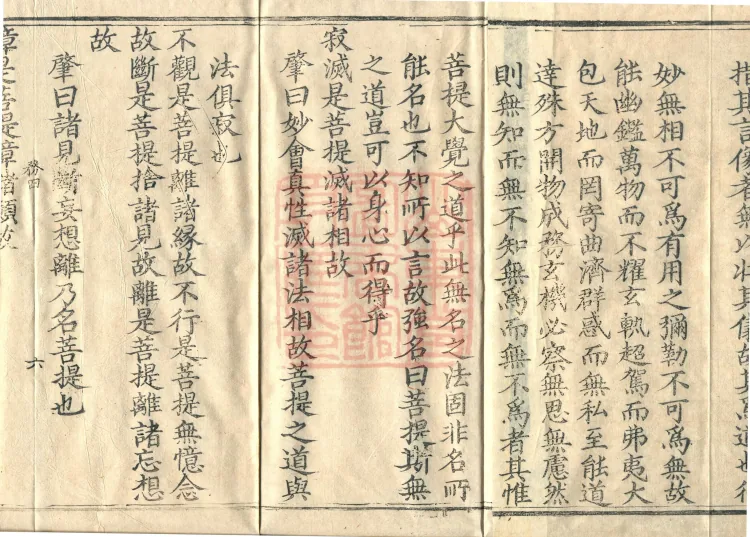 措其言像者無以狀其儀故其爲道也
妙無相不可爲有用之彌勤不可爲無故
能幽鑑萬物而不耀玄軌超駕而弗夷大
包天地而罔寄曲濟群惑而無私至能道
達殊方開物成務玄機必察無思無慮然
則無知而無不知無爲而無不爲者其惟
菩提大覺之道乎此無名之法固非名所
能名也不知所以言故強名曰菩提斯無
之道豈可以身心而得乎
寂滅是菩提滅諸相故
肇曰妙會真性滅諸法相故菩提之道與
法俱寂也
不觀是菩提離諸緣故不行是菩提無憶念
故斷是菩提捨諸見故離是菩提離諸忘想
故
肇曰諸見斷妄想離乃名菩提也
務四 六
障是菩提障諸願故